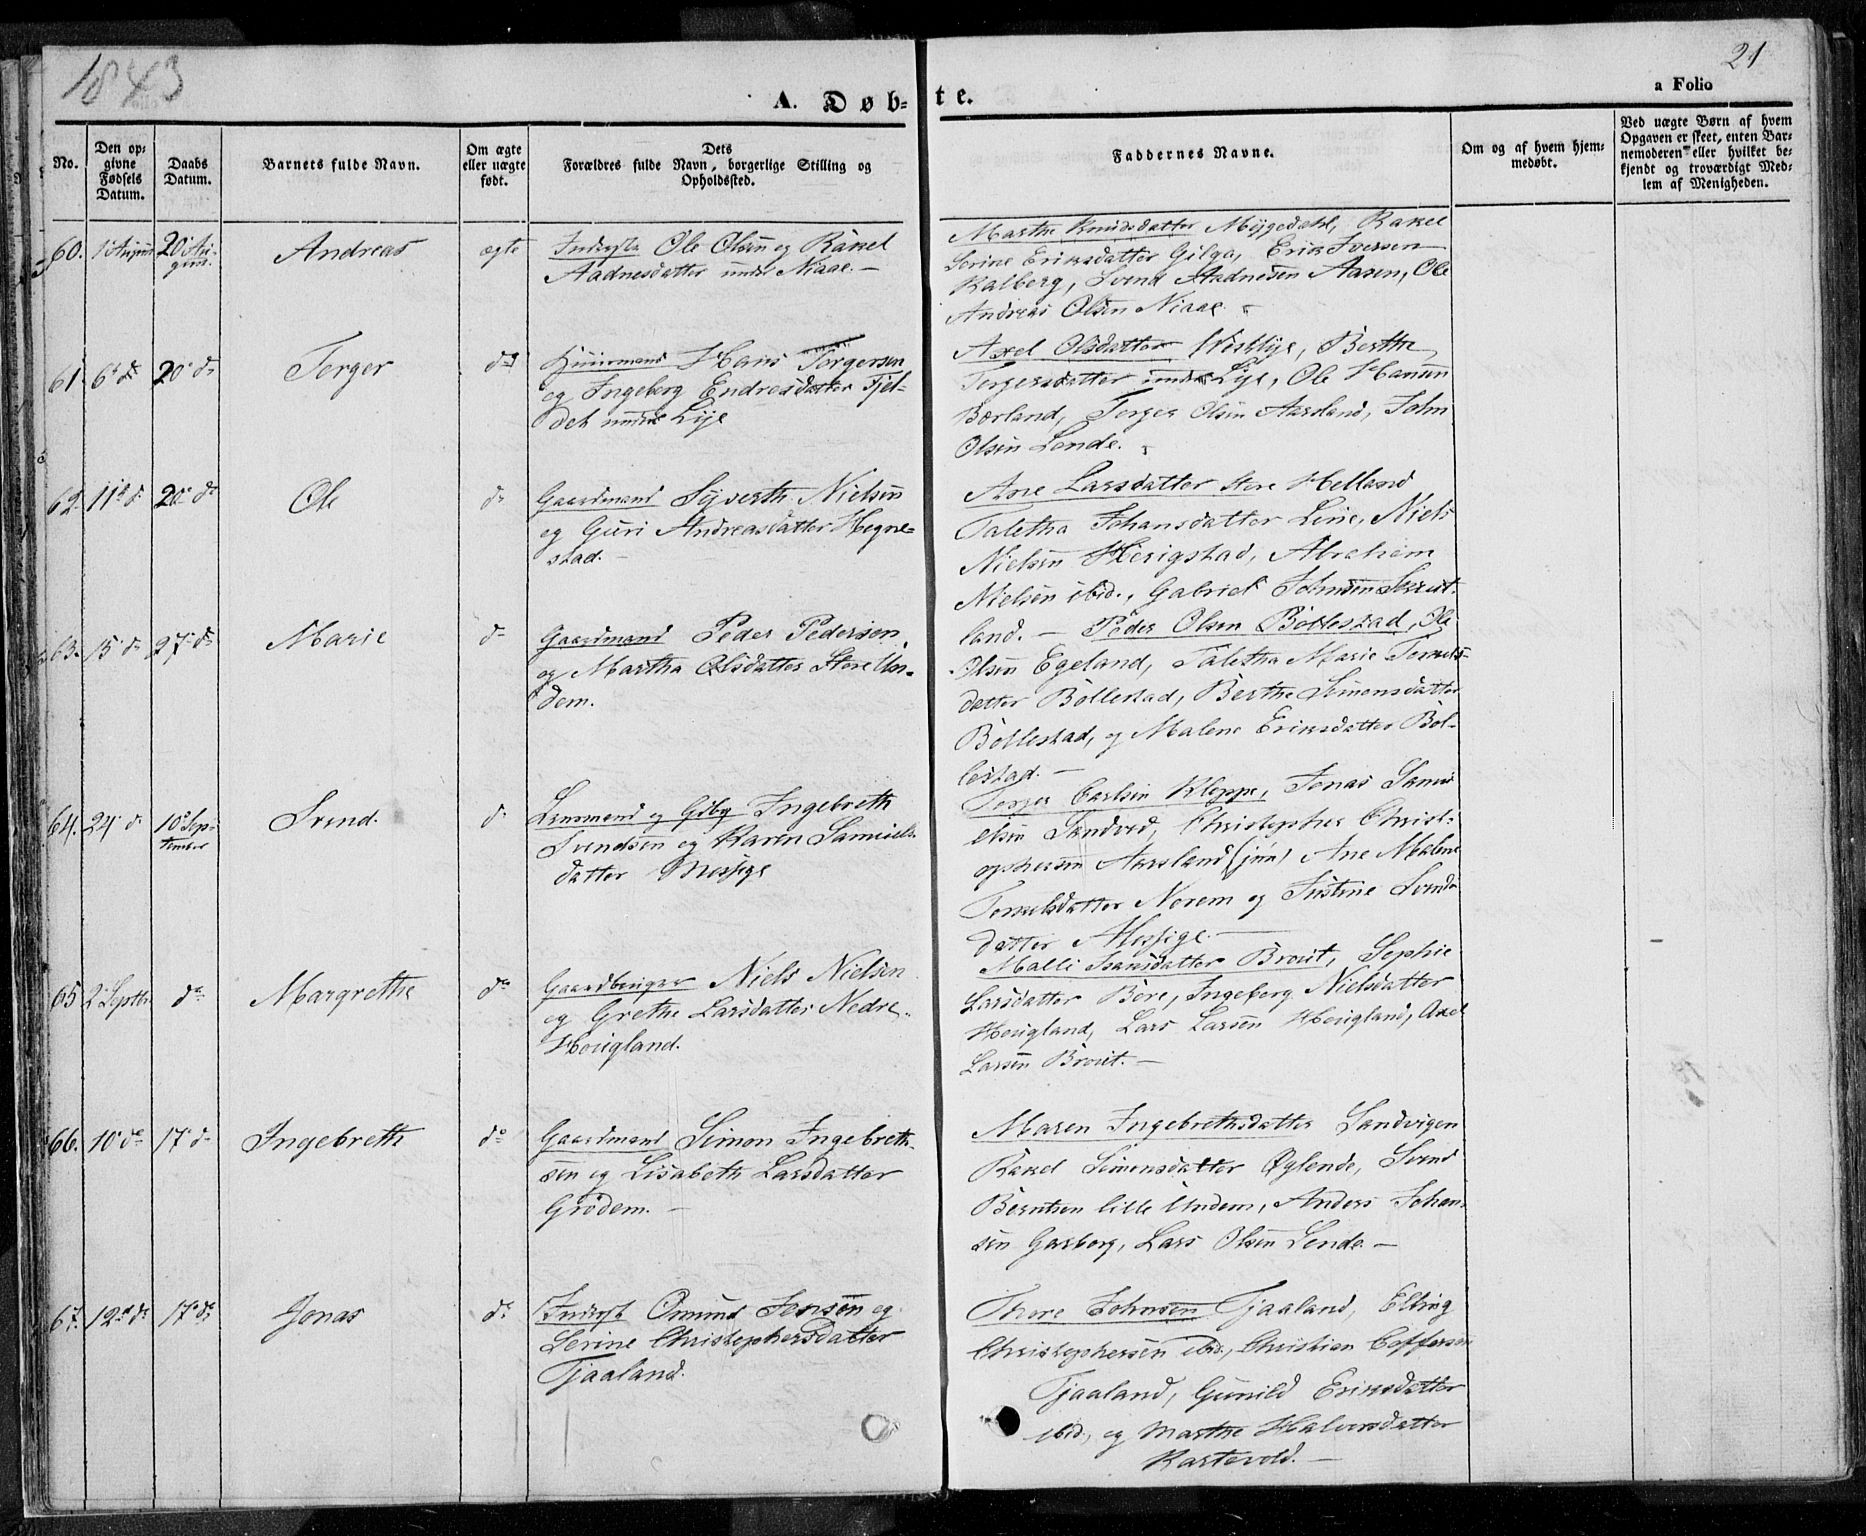 1843
21
a Folio
A. Døb-
te.
No.
Den op-
givne
Fødsels
Datum.
Daabs
Datum.
Barnets fulde Navn.
Om ægte
eller uægte
født.
Dets
Forældres fulde Navn, borgerlige Stilling og
Opholdssted.
Faddernes Navne.
Om og af hvem hjem-
medøbt.
Ved uægte Børn af hvem
Opgaven er skeet, enten Bar-
nemoderen eller hvilket be-
kjendt og troværdigt Med-
lem af Menigheden.
60.
20 Au-
gust.
Andreas
ægte
Inderste Ole Olsen og Rakel
Aadnesdatter under Niaae. –
Marthe Knudsdatter Mygedahl, Rakel
Serine Eriksdatter Gilga, Erik Iversen
Kalberg, Svend Aadnesen Aasen, Ole
Andreas Olsen Niaae.
61
6 d
20 d
Torger
do
Huusmand Hans Torgersen
og Ingeborg Endresdatter Fjel-
det under Lye
Axel Olsdatter Vestlye, Berthe
Torgersdatter under Lye, Ole Hansen
Borland, Torger Olsen Aarsland, John
Olsen Lende.
62.
11 d
20 d
Ole
do
Gaardmand Syverth Nielsen
og Guri Andreasdatter Hegne-
stad. –
Ane Larsdatter store Helland
Taletha Johansdatter Line, Niels
Nielsen Herigstad, Abraham
Nielsen ibid., Gabriel Johnsen Skrut-
land. –
63.
15 d
27 d
Marie
do
Gaardmand Peder Pedersen
og Martha Olsdatter Store Un-
dem.
Peder Olsen Bollestad, Ole
Olsen Egeland, Taletha Marie Torkels-
datter Bollestad, Berthe Simonsdatter
Bollestad, og Malene Eriksdatter Bol-
lestad. –
64.
24 d
10 Sep-
tember
Svend.
do
Lensmand og Gbg Ingebreth
Svendsen og Karen Samuels-
datter Mossige
Torger Carlsen Kleppe, Jonas Samu-
elsen Sandved, Christopher Christ-
ophersen Aarsland (jun) Ane Malene
Torkelsdatter Norem og Justine Svends-
datter Mossige. –
65
2 Septbr
do
Margrethe
do
Gaardbruger Niels Nielsen
og Grethe Larsdatter Nedre
Hougland.
Malli Isaksdatter Brout, Sophie
Larsdatter Bore, Ingeborg Nielsdatter
Hougland, Lars Larsen Hougland, Axel
Larsen Brout. –
66.
10 do
17 d
Ingebreth
do
Gaardmand Simon Ingebreth-
sen og Lisabeth Larsdatter
Grødem. –
Maren Ingebrethsdatter Sandvigen
Rakel Simonsdatter Øglende, Svend
Berntsen lille Undem, Anders Johan-
sen Garborg, Lars Olsen Lende. –
67.
12 d
17 d
Jonas
do
Inderst Omund Jensen og
Serine Christophersdatter
Tjaaland.
Thore Johnsen Tjaaland, Elling
Christophersen ibid., Christian Toffersen
Tjaaland, Gunild Eriksdatter
ibid., og Marthe Halvorsdatter
Kartevold. –